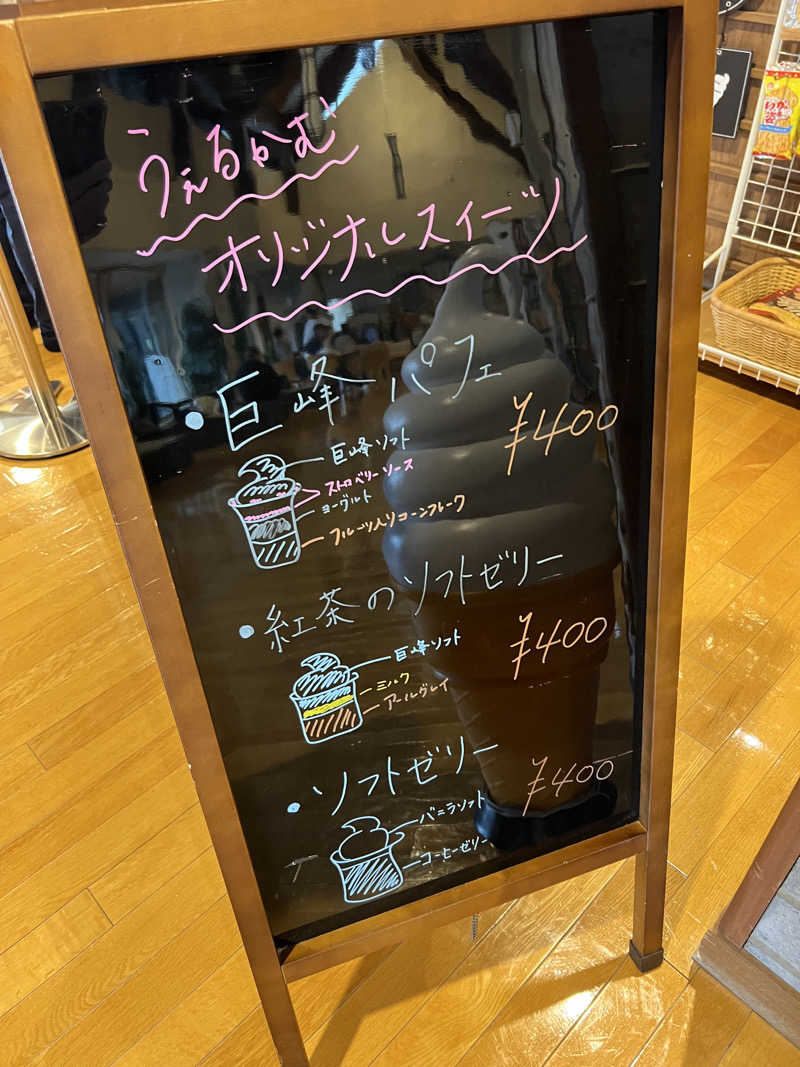 うぇるかむ
オリジナルスイーツ
・巨峰パフェ
¥400
巨峰ソフト
ストロベリーソース
ヨーグルト
フルーツ入りコーンフレーク
・紅茶のソフトゼリー
¥400
巨峰ソフト
ミルク
アールグレイ
・ソフトゼリー
¥400
バニラソフト
コーヒーゼリー